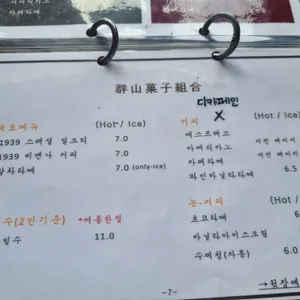 아메리카노
카페라떼
群山菓子組合
디카페인
X
(Hot / Ice)
1939 스페셜 밀크티 7.0
1939 비엔나 커피 7.0
말차라떼 7.0 (only-ice)
수(2인기준) *여름한정
빙수 11.0
커피 (Hot / I
에스프레소
아메리카노
카페라떼
와인바닐라라떼 6.5
논-커피 (Hot /
초코라떼 6
바닐라아이스크림
수제청(자몽) 6.0
-7-
→뒷장에